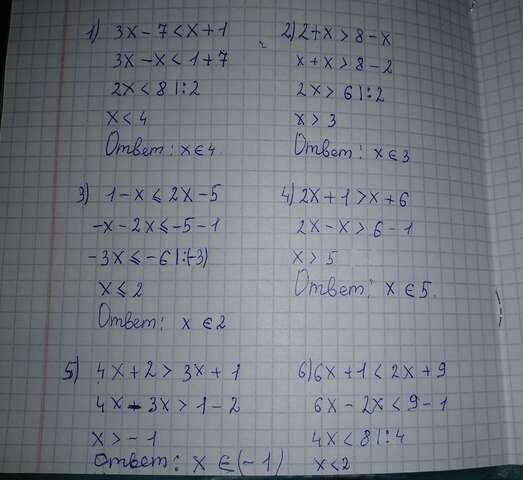 1) 3x - 7 < x + 1
3x - x < 1 + 7
2x < 8 |:2
x < 4
Ответ: x ∈ 4
2) 2 + x > 8 - x
x + x > 8 - 2
2x > 6 |:2
x > 3
Ответ: x ∈ 3
3) 1 - x ⩽ 2x - 5
-x - 2x ⩽ -5 - 1
-3x ⩽ -6 |:(-3)
x ⩽ 2
Ответ: x ∈ 2
4) 2x + 1 > x + 6
2x - x > 6 - 1
x > 5
Ответ: x ∈ 5.
5) 4x + 2 > 3x + 1
4x - 3x > 1 - 2
x > -1
Ответ: x ∈ (-1)
6) 6x + 1 < 2x + 9
6x - 2x < 9 - 1
4x < 8 |:4
x < 2